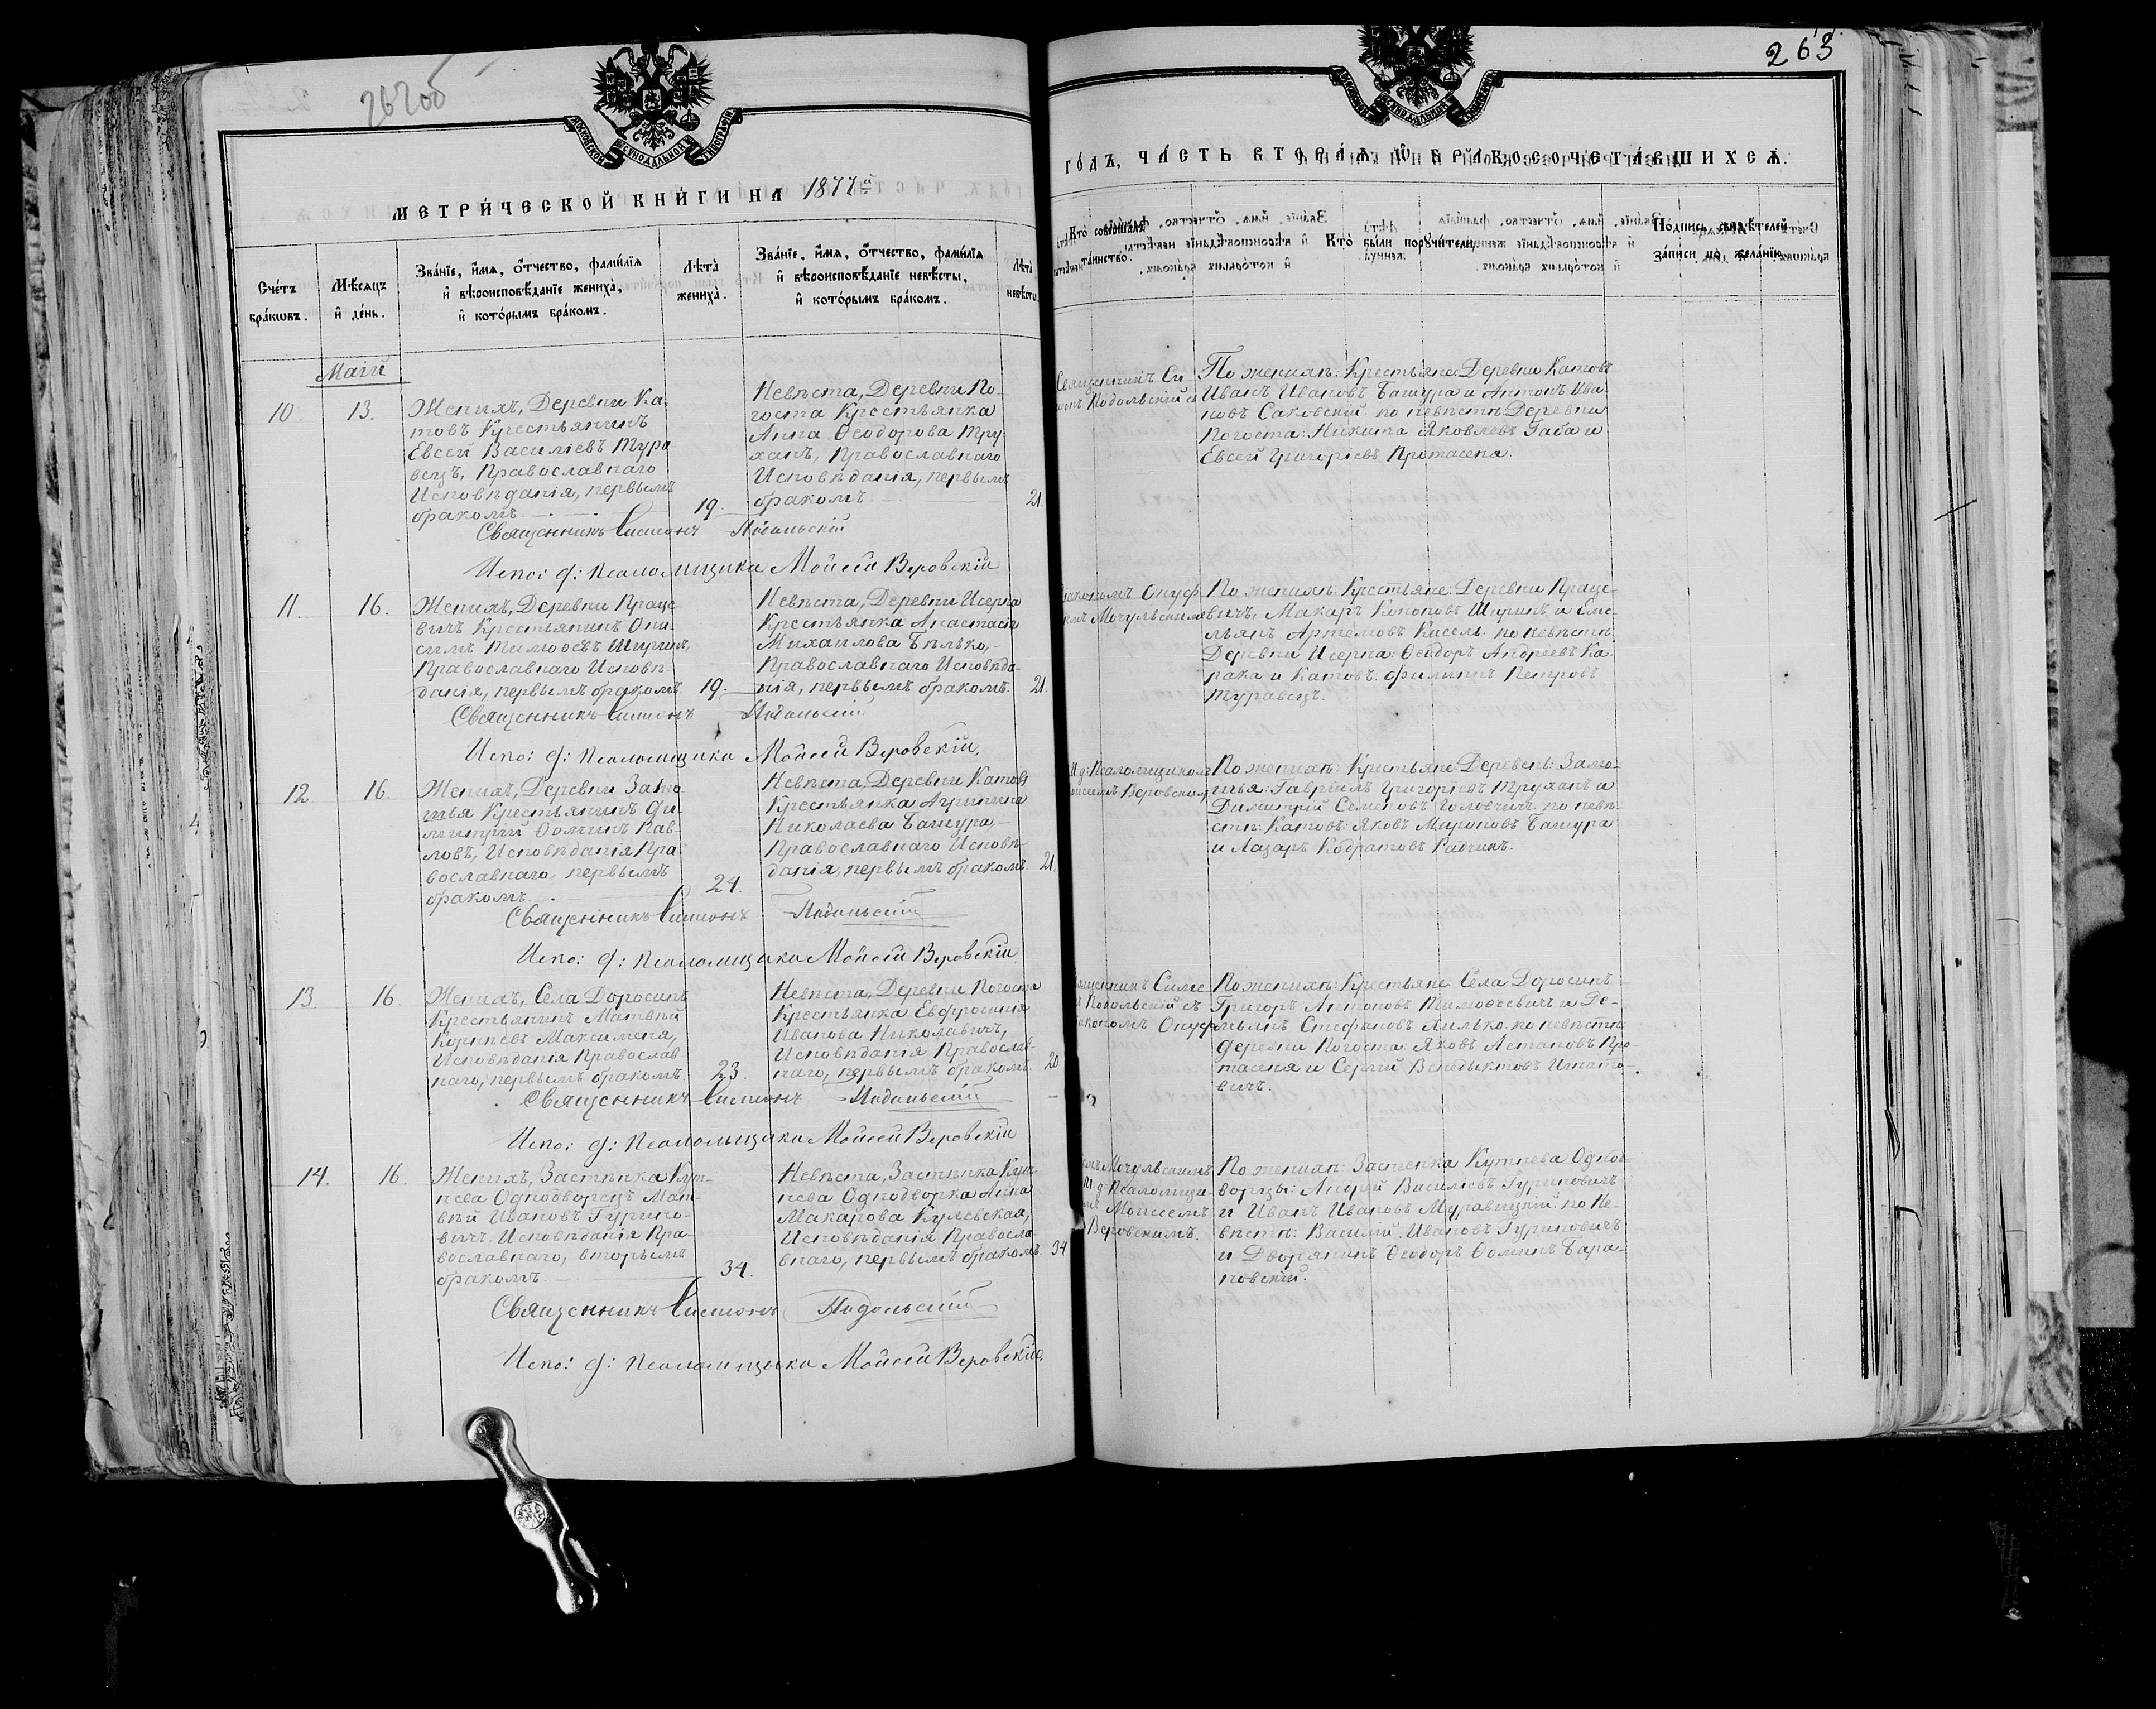 262об
МОСКОВСКОЙ СѴНОДАЛЬНОЙ ТИПОГРАФІИ
МЕТРИ́ЧЕСКОЙ КНИ́ГИ НА 1877й
Сче́тъ бра́кωвъ.
Мѣ́сяцъ и҆ де́нь.
Зва́нїе, и҆́мѧ, ѻ҆́тчество, фами́лїѧ
и҆ вѣроисповѣ́данїе жениха̀,
и҆ кото́рымъ бра́комъ.
Лѣта̀
жениха̀.
Зва́нїе, и҆́мѧ, ѻ҆́тчество, фами́лїѧ
и҆ вѣроисповѣ́данїе невѣ́сты,
и҆ кото́рымъ бра́комъ.
Лѣта̀
невѣ́сты.
Маій
10.
13.
Женихъ, Деревни Ка-
товъ Крестьянинъ
Евсей Василіевъ Тура-
вецъ, Православнаго
Исповѣданія, первымъ
бракомъ.
19.
Невѣста, Деревни По-
госта Крестьянка
Анна Ѳеодорова Тру-
ханъ, Православнаго
Исповѣданія, первымъ
бракомъ
21.
Священникъ Симеонъ Подольскій
Испо: д: псаломщика Моисей Веровскій
11.
16.
Женихъ, Деревни Праце-
вичъ Крестьянинъ Они-
симъ Тимоѳевъ Ширинъ,
Православнаго Исповѣ-
данія, первымъ бракомъ.
19.
Невѣста, Деревни Исерна
Крестьянка Анастасія
Михайлова Бѣлько,
Православнаго Исповѣда-
нія, первымъ бракомъ.
21.
Священникъ Симеонъ Подольскій
Испо: д: псаломщика Моисей Веровскій.
12.
16.
Женихъ, Деревни Замо-
шья Крестьянинъ Ди-
митрій Ѳоминъ Пав-
ловъ, Исповѣданія Пра-
вославнаго, первымъ
бракомъ.
24.
Невѣста, Деревни Катовъ
Крестьянка Агрипина
Николаева Башура,
Православнаго Исповѣ-
данія, первымъ бракомъ.
21.
Священникъ Симеонъ Подольскій
Испо: д: псаломщика Моисей Веровскій
13.
16.
Женихъ, Села Доросинъ
Крестьянинъ Матвѣй
Корнѣевъ Максименя,
Исповѣданія Православ-
наго, первымъ бракомъ.
23.
Невѣста, Деревни Погоста
Крестьянка Евфросинія
Иванова Николавичъ,
Исповѣданія Православ-
наго, первымъ бракомъ.
20
Священникъ Симеонъ Подольскій
Испо: д: псаломщика Моисей Веровскій
14.
16.
Женихъ, Застѣнка Кут-
нева Однодворецъ Мат-
вѣй Ивановъ Гурино-
вичъ, Исповѣданія Пра-
вославнаго, вторымъ
бракомъ.
34.
Невѣста, Застѣнка Кут-
нева Однодворка Анна
Макарова Кулевская,
Исповѣданія Правосла-
внаго, первымъ бракомъ.
34
Священникъ Симеонъ Подольскій
Испо: д: псаломщика Моисей Веровскій.
263
ГО́ДЪ, ЧА́СТЬ ВТОРА́Ѧ, Ѽ БРАКОСОЧЕТА́ВШИХСѦ.
Кто̀ соверша́лъ
та́инство.
Кто̀ бы́ли поручи́тели.
По́дпись свидѣ́телей
за́писи по жела́нїю.
Священникъ Си-
Подольскій
По женихѣ: Крестьяне Деревни Катовъ
Иванъ Ивановъ Башура и Антонъ Ива-
новъ Саковскій по невѣстѣ Деревни
Погоста: Никита Яковлевъ Габа и
Евсей Григоріевъ Протасеня.
Мочульскимъ
По женихѣ: Крестьяне: Деревни Праце-
вичъ, Макаръ Кононовъ Ширинъ и Еме-
льянъ Артемовъ Кисель. по невѣстѣ
Деревни Исерна: Ѳеодоръ Андреевъ Ка-
рака и Катовъ: Филиппъ Петровъ
Туравецъ.
И.д: Псаломщикомъ
Веровскимъ
По женихѣ: Крестьяне Деревень: Замо-
шья: Гавріилъ Григоріевъ Труханъ и
Димитрій Семеновъ Головчичъ по невѣ-
стѣ: Катовъ: Яковъ Мироновъ Башура
и Лазаръ Кодратовъ Радчикъ.
Симео-
Подольскій съ
Онуф-
По женихѣ: Крестьяне Села Доросинъ
Григоръ Антоновъ Тимоѳеевичъ и Де-
мьянъ Стефановъ Лилько. по невѣстѣ
деревни Погоста: Яковъ Астаповъ Про-
тасеня и Сергій Венедыктовъ Игнато-
вичъ.
Мочульскимъ
И д: Псаломщи-
Моисеемъ
Веровскимъ.
По женихѣ: Застенка Кутнева Однод-
ворцы: Андрей Василіевъ Гуриновичъ
и Иванъ Ивановъ Муравицкій. по Не-
вѣстѣ: Василій Ивановъ Гуриновичъ
и Дворянинъ Ѳеодоръ Ѳоминъ Бара-
новскій.